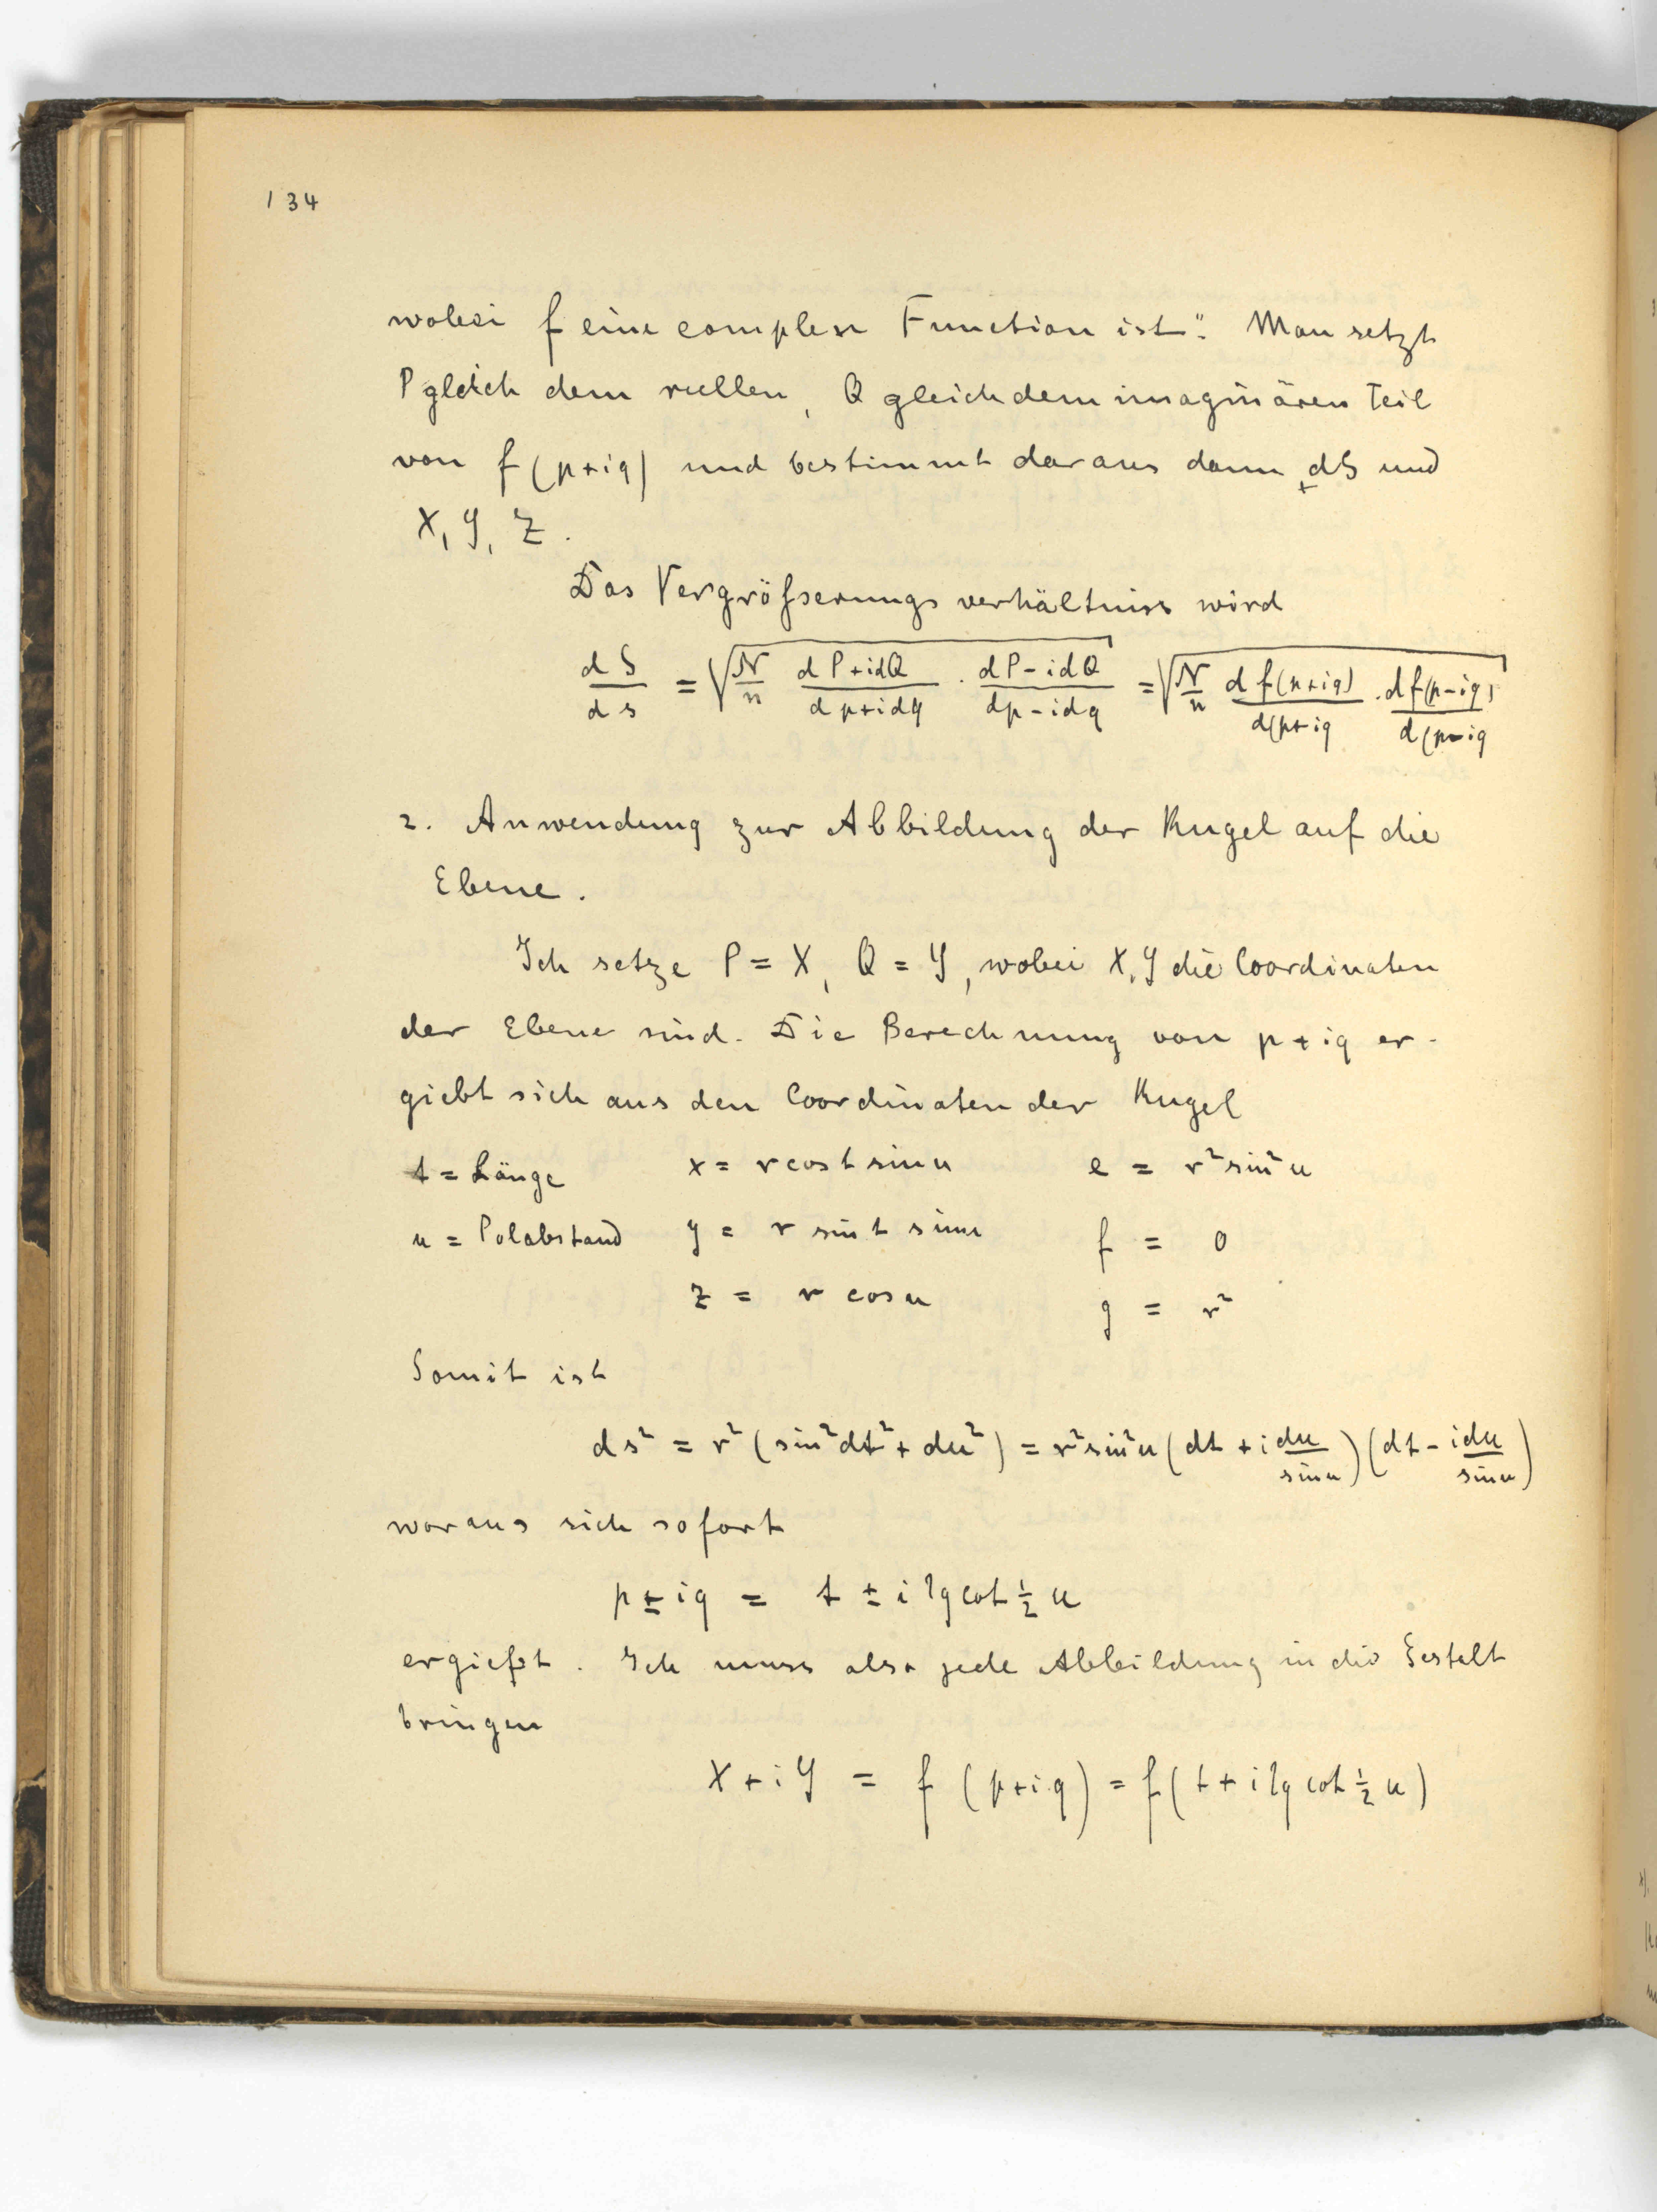 134
wobei f eine complexe Function ist“. Man setzt
P gleich dem reellen, Q gleich dem imaginären Teil
von f(p+iq) und bestimmt daraus dann dS und
X, Y, Z.
Das Vergrößserungsverhältniss wird
dS/ds = √(N/n (dP+idQ)/(dp+idq) · (dP-idQ)/(dp-idq)) = √(N/n df(p+iq)/d(p+iq · df(p-iq)/d(p-iq)
2. Anwendung zur Abbildung der Kugel auf die
Ebene.
Ich setze P = X, Q = Y, wobei X, Y die Coordinaten
der Ebene sind. Die Berechnung von p+iq er-
giebt sich aus den Coordinaten der Kugel
t = Länge x = r cos t sin u e = r² sin² u
u = Polabstand y = r sin t sin u f = 0
z = r cos u g = r²
Somit ist
ds² = r² (sin² dt² + du²) = r² sin² u (dt + i du/sin u) (dt - i du/sin u)
woraus sich sofort
p ± iq = t ± i lg cot ½ u
ergiebt. Ich muss also jede Abbildung in die Gestalt
bringen
X + iY = f (p+iq) = f(t + i lg cot ½ u)